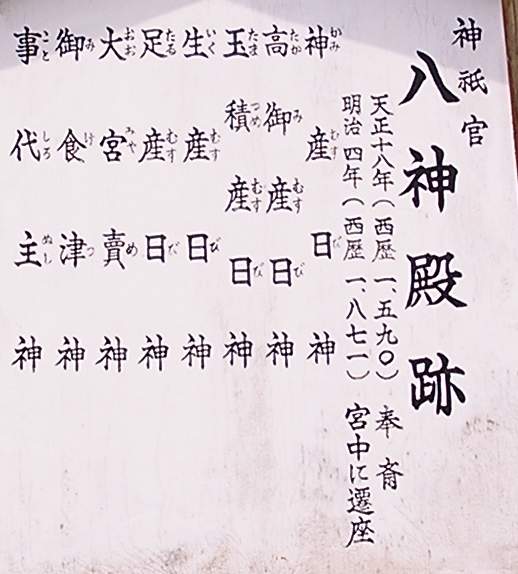 神祇官
八神殿跡
天正十八年（西歴一、五九〇）奉斎
明治四年（西歴一、八七一）宮中に遷座
神産日神
高御産日神
玉積産日神
生産日神
足産日神
大宮賣神
御食津神
事代主神